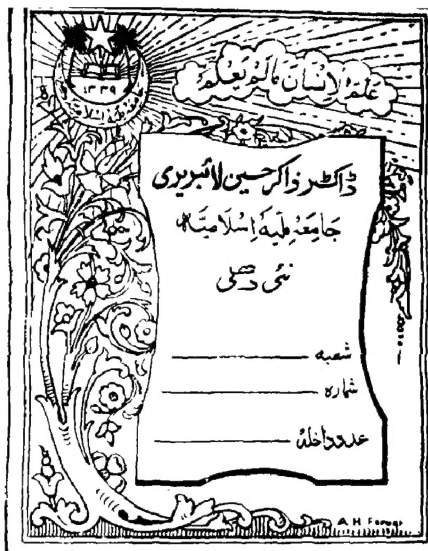 علم الانسان مالم یعلم
۱۳۳۹
ڈاکٹر ذاکر حسین لائبریری
جامعہ ملیہ اسلامیہ
نئی دہلی
شعبہ
شمارہ
عدد داخلہ
A H Faruqi